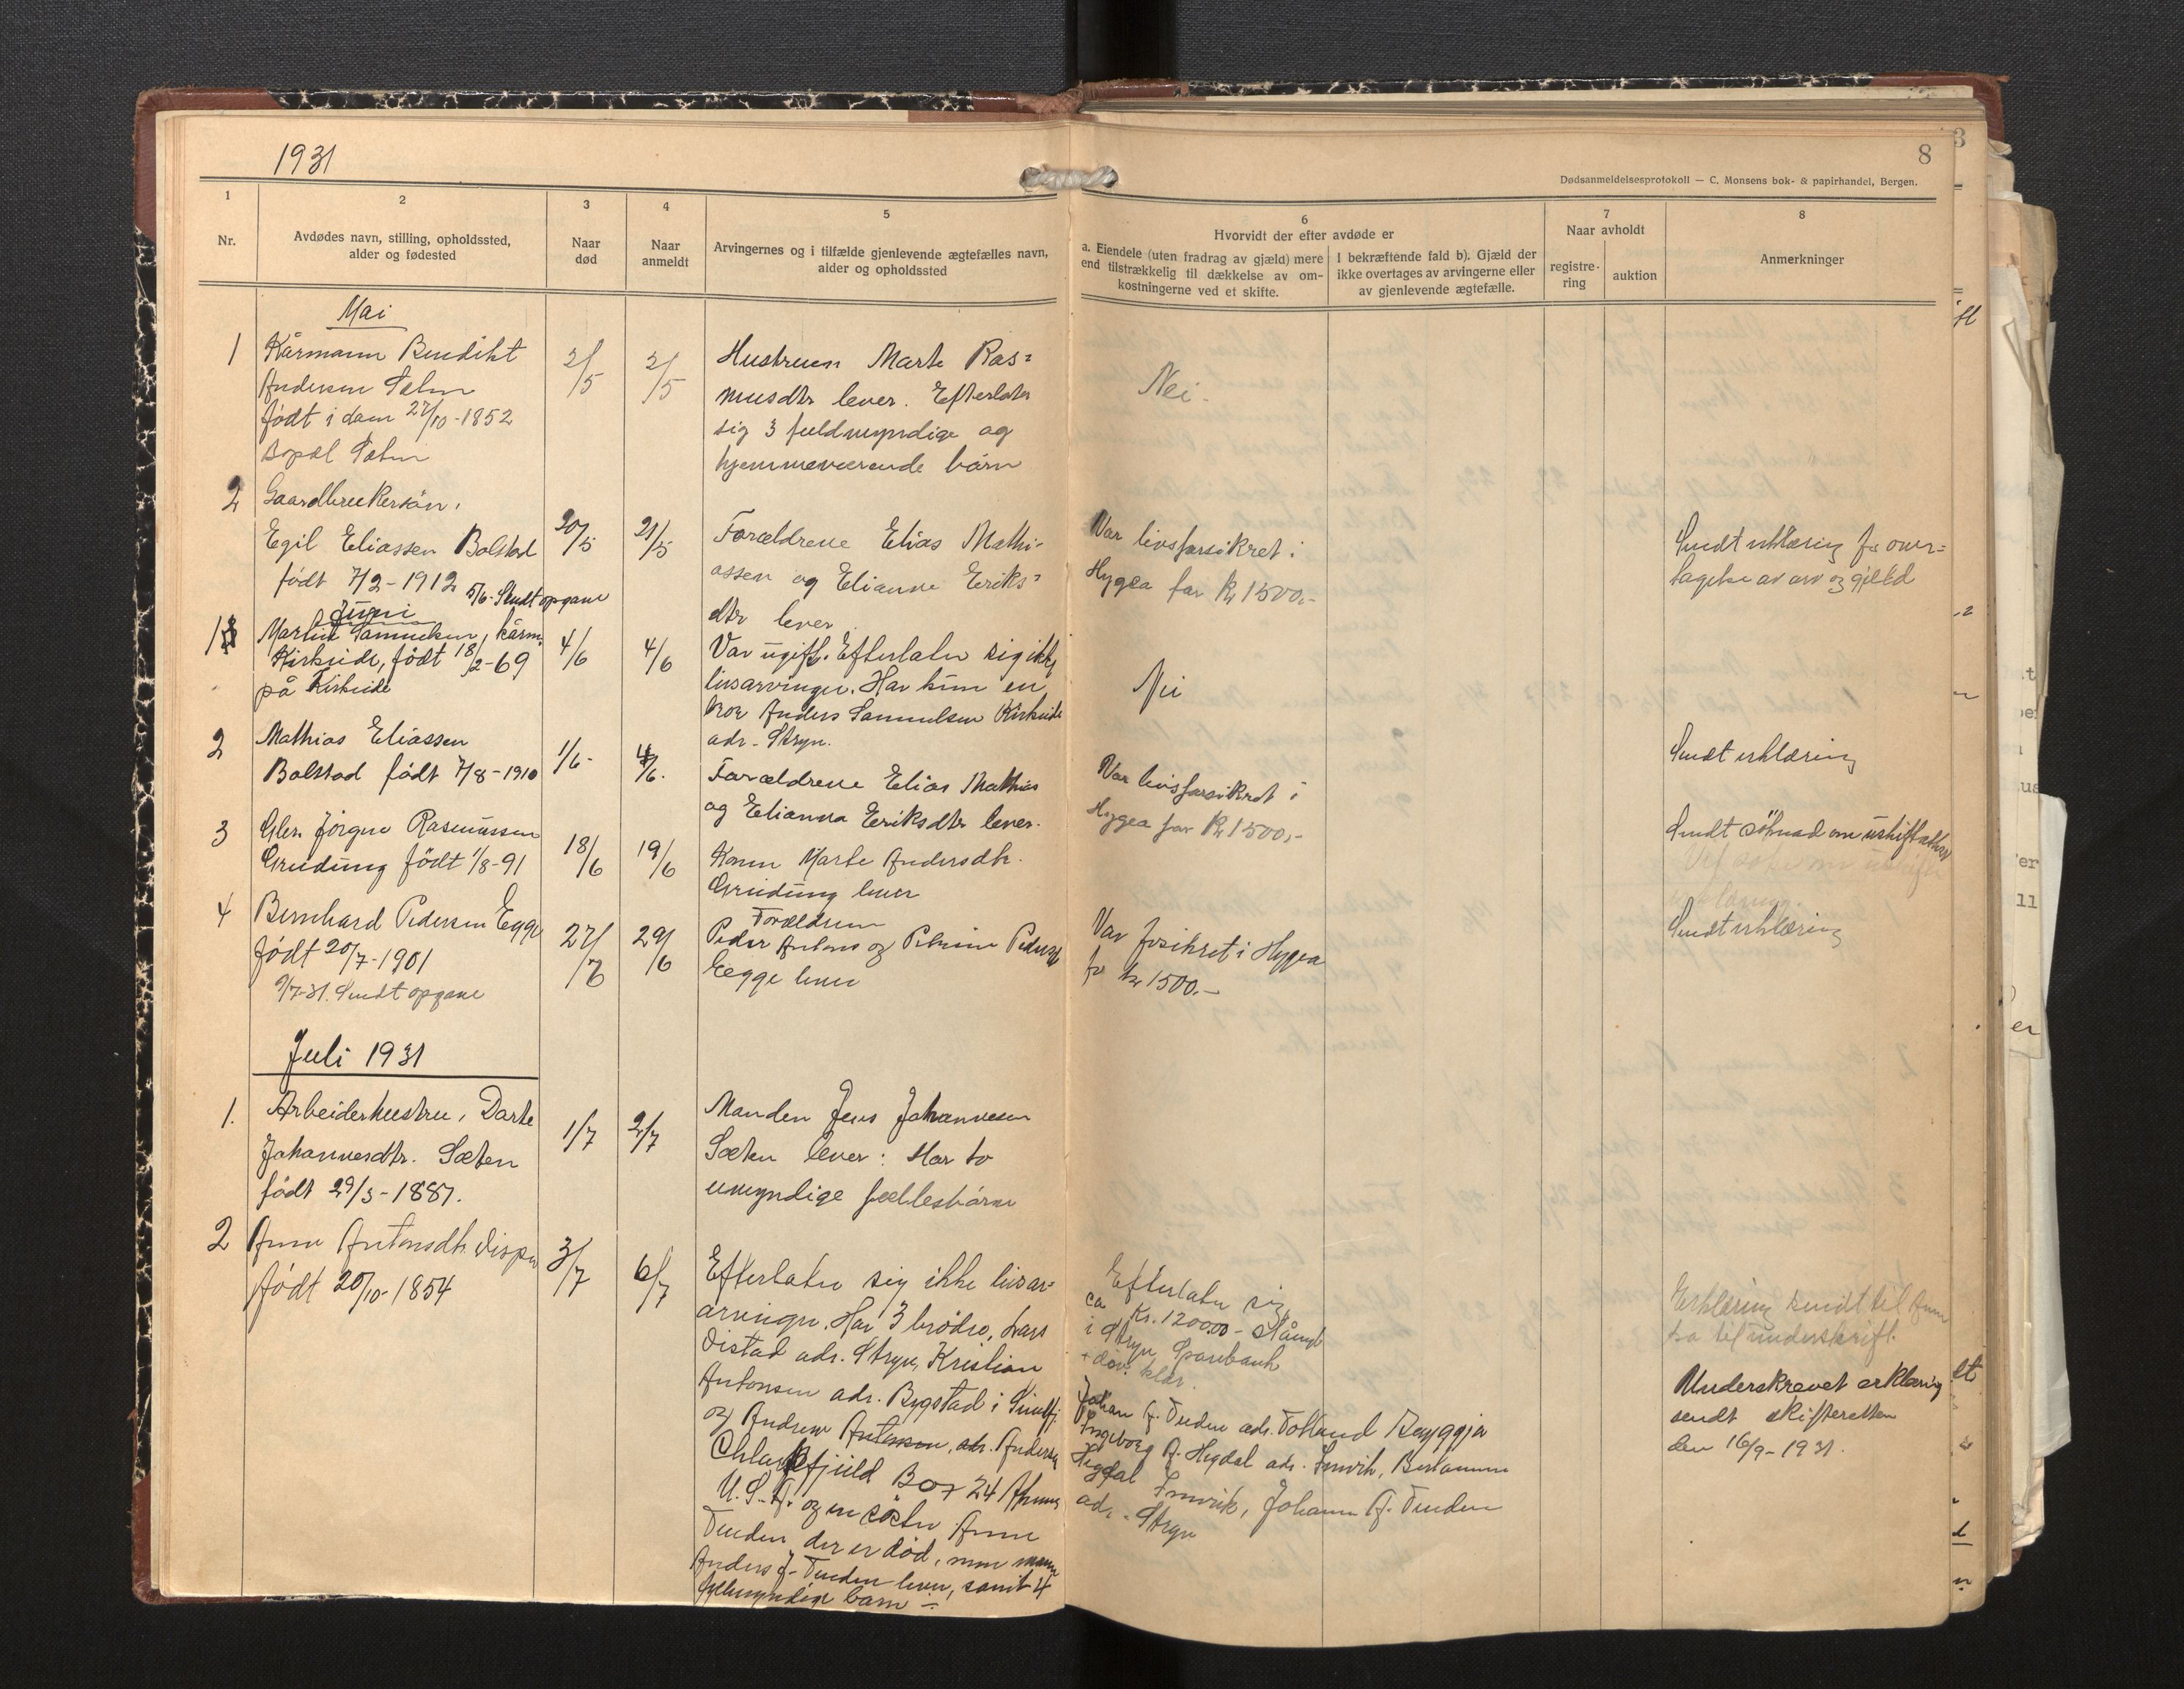 1931
8
Dødsanmeldelsesprotokoll — C. Monsens bok- & papirhandel, Bergen.
1
Nr.
2
Avdødes navn, stilling, opholdssted,
alder og fødested
3
Naar
død
4
Naar
anmeldt
5
Arvingernes og i tilfælde gjenlevende ægtefælles navn,
alder og opholdssted
6
Hvorvidt der efter avdøde er
a. Eiendele (uten fradrag av gjæld) mere
end tilstrækkelig til dækkelse av om-
kostningerne ved et skifte.
I bekræftende fald b). Gjæld der
ikke overtages av arvingerne eller
av gjenlevende ægtefælle.
7
Naar avholdt
registre-
ring
auktion
8
Anmerkninger
Mai
1
Kårmann Bendikt
Andersen
født i dam 27/10-1852
2/5
2/5
Hustruen Marte Ras=
musdtr lever. Efterlater
sig 3 fuldmyndige og
hjemmeværende børn
Nei.
2
Gaardbrukersön,
Egil Eliassen Bolstad
født 7/2-1912 5/6-Sendt opgave
20/5
21/5
Forældrene Elias Mathi-
assen og Elianne Eriks=
dtr lever
Var livsforsikret i
Hygea for Kr 1500,-
Sendt erklæring for over=
tagelse av arv og gjeld
Juni
1
Martin Samuelsen, kårm.
Kirkeide, født 18/2-69
på Kirkeide
4/6
4/6
Var ugift. Efterlater sig ikke
livsarvinger. Har kun en
bror Anders Samuelsen Kirkeide
adr. Stryn.
Nei
2
Mathias Eliassen
Bolstad født 7/8-1910
1/6-
4/6.
Forældrene Elias Mathias
og Elianna Eriksdtr lever.
Var livsforsikret i
Hygea for Kr 1500,-
Sendt erklæring
3
Jörgine Rasmussen
Greidung födt 1/8-91
18/6
19/6
Konen Marte Andersdtr.
Greidung lever
Sendt söknad om uskifteattest
4
Bernhard Pedersen Egge
født 20/7-1901
9/7-31. Sendt opgave
27/6
29/6
Forældrene
Peder Antons og Petrine Pedersd
Eegge lever
Var forsikret i Hygea
for kr 1500.-
Sendt erklæring
Juli 1931
1.
Arbeiderhustru, Dorte
Johannesdtr. Sæten
født 29/3-1887.
1/7
2/7
Manden Jens Johannesen
Sæten lever: Har to
umyndige fællesbörn
2
Anne Antonsdtr.
født 20/10-1854
3/7
6/7
Efterlater sig ikke livsar=
arvinger. Har 3 brødre, Lars
Vistad adr. Stryn, Kristian
Antonsen adr. Bygstad i Sundfj.
og Andrew Antonsen, adr.
Box 24
U.S.A. og en söster Anne
Tenden der er död, men mann
Anders J. Tenden lever, samt 4
fuldmyndige barn -
Efterlater sig
ca Kr. 1200.00 -
i Stryn Sparebank
+ div. klær.
Johan A. Tenden adr.
Ingeborg A. Hegdal adr. Innvik,
Hegdal Innvik, Johanne A. Tenden
adr. Stryn
Erklæring sendt til
til underskrift.
Underskrevet erklæring
sendt skifteretten
den 16/9-1931.